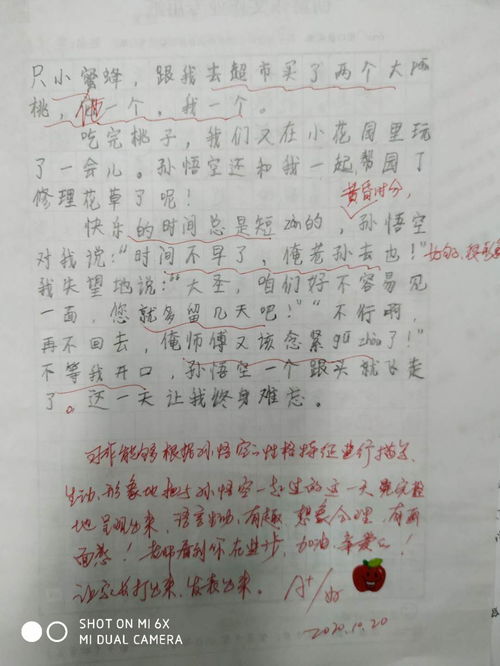 只小蜜蜂，跟我去超市买了两个大
桃，他一个，我一个。
吃完桃子，我们又在小花园里玩
了一会儿。孙悟空还和我一起帮园丁
修理花草了呢！
黄昏时分，
快乐的时间总是短zàn的，孙悟空
对我说：“时间不早了，俺老孙去也！”
我失望地说：“大圣，咱们好不容易见
一面，您就多留几天吧！”“不行啊，
再不回去，俺师傅又该念紧gū zhòu了！”
不等我开口，孙悟空一个跟头就飞走
了。这一天让我终身难忘。
能够根据孙悟空的性格特征进行描述，
生动、形象地把与孙悟空一起过的这一天完整
地呈现出来，语言生动、有趣，想象合理，有画
面感！老师看到你在进步，加油，亲爱的！
让家长打出来，发表出来。
A+/好
2020.10.20
SHOT ON MI 6X
MI DUAL CAMERA